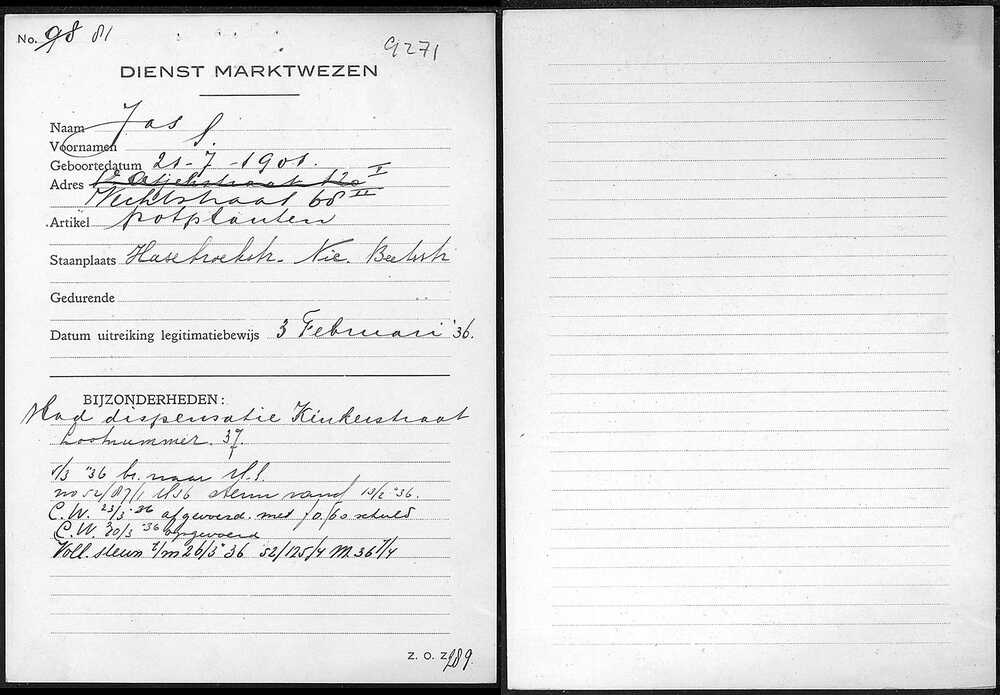 No. 98 81
9271
DIENST MARKTWEZEN
Naam Jas
Voornamen S.
Geboortedatum 21-7-1901.
Adres 120 I
Vechtstraat 68 II
Artikel potplanten
Staanplaats Hasebroekstr. Nic. Beetsstr
Gedurende
Datum uitreiking legitimatiebewijs 3 Februari '36.
BIJZONDERHEDEN:
Had dispensatie Kinkerstraat
Lootnummer. 37.
5/3 '36 br. naar M.S.
no 52/87/1 M36 steun vanaf 13/2 '36.
C.W. 23/3 '36 afgevoerd met f 0.60 schuld
C.W. 30/3 '36 opgevoerd
Voll. steun t/m 26/3 '36 52/125/4 M. 36 7/4
Z. O. Z. 989